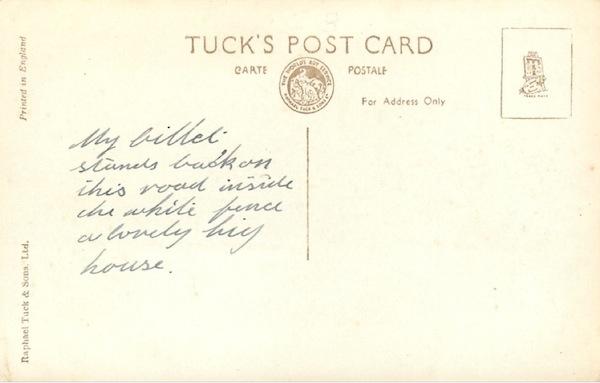 TUCK'S POST CARD
CARTE POSTALE
THE WORLD'S ART SERVICE
RAPHAEL TUCK & SONS LTD
For Address Only
TRADE MARK
Printed in England
My billet
stands back on
this road inside
the white fence
a lovely big
house.
Raphael Tuck & Sons, Ltd.